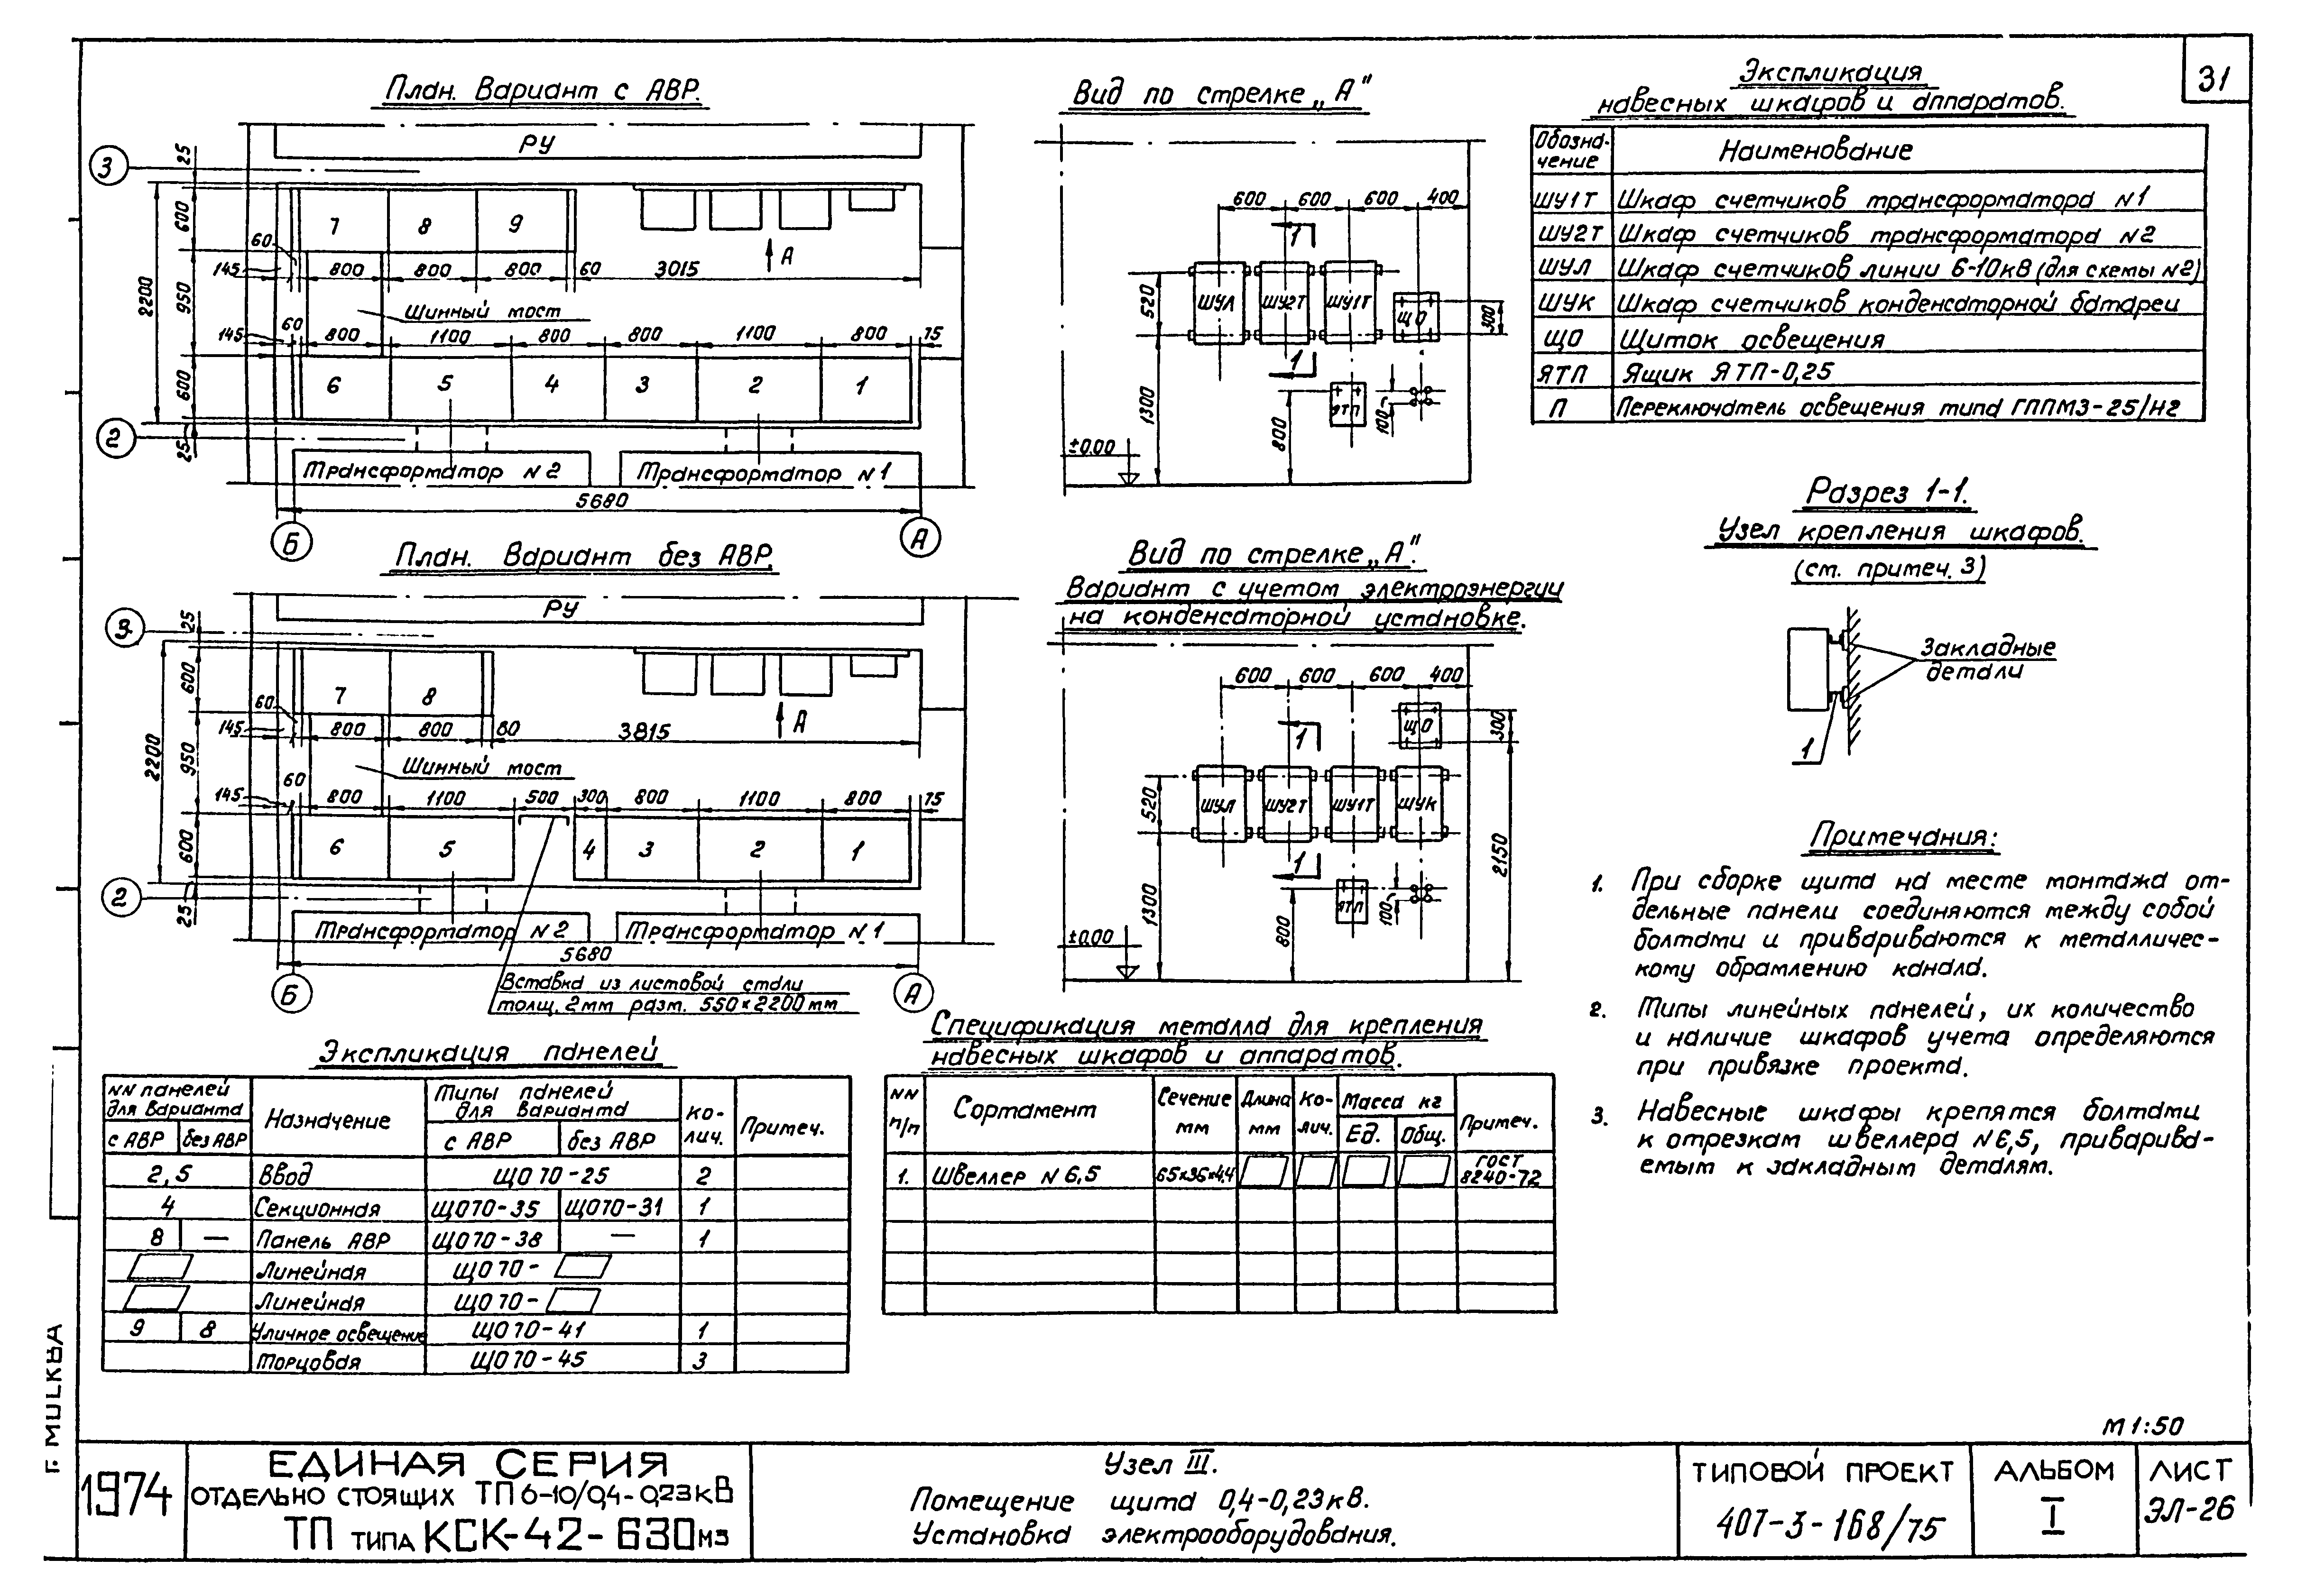 31
План. Вариант с АВР.
РУ
3
25
600
2200
950
600
25
2
7
8
9
60
145
800
800
800
60
3015
А
Шинный мост
60
145
800
1100
800
800
1100
800
75
6
5
4
3
2
1
Трансформатор N2
Трансформатор N1
5680
Б
А
Вид по стрелке „А"
600
600
600
400
1
ШУЛ
ШУ2Т
ШУ1Т
ЩО
520
300
1
ЯТП
100
1300
800
±0.00
Экспликация
навесных шкафов и аппаратов.
Обозна-
чение
Наименование
ШУ1Т Шкаф счетчиков трансформатора N1
ШУ2Т Шкаф счетчиков трансформатора N2
ШУЛ Шкаф счетчиков линии 6-10кв (для схемы N2)
ШУК Шкаф счетчиков конденсаторной батареи
ЩО Щиток освещения
ЯТП Ящик ЯТП-0,25
П Переключатель освещения типа ГППМЗ-25/Н2
План. Вариант без АВР.
РУ
3
25
600
2200
950
600
25
2
7
8
60
145
800
800
60
3815
А
Шинный мост
60
145
800
1100
500
300
800
1100
800
75
6
5
4
3
2
1
Трансформатор N2
Трансформатор N1
5680
Б
А
Вставка из листовой стали
толщ. 2мм разм. 550×2200мм
Вид по стрелке „А".
Вариант с учетом электроэнергии
на конденсаторной установке.
600
600
600
400
ЩО
300
1
ШУЛ
ШУ2Т
ШУ1Т
ШУК
520
1
ЯТП
100
1300
800
2150
±0.00
Разрез 1-1.
Узел крепления шкафов.
(см. примеч. 3)
Закладные
детали
1
Примечания:
1. При сборке щита на месте монтажа от-
дельные панели соединяются между собой
болтами и привариваются к металличес-
кому обрамлению канала.
2. Типы линейных панелей, их количество
и наличие шкафов учета определяются
при привязке проекта.
3. Навесные шкафы крепятся болтами
к отрезкам швеллера N6,5, приварива-
емым к закладным деталям.
Экспликация панелей
NN панелей
для варианта
с АВР без АВР
Назначение
Типы панелей
для варианта
с АВР без АВР
Ко-
лич.
Примеч.
2,5 Ввод ЩО 70-25 2
4 Секционная ЩО70-35 ЩО70-31 1
8 — Панель АВР ЩО70-38 — 1
Линейная ЩО70-
Линейная ЩО70-
9 8 Уличное освещение ЩО70-41 1
Торцовая ЩО70-45 3
Спецификация металла для крепления
навесных шкафов и аппаратов.
NN
п/п
Сортамент
Сечение
мм
Длина
мм
Ко-
лич.
Масса кг
Ед. Общ.
Примеч.
1. Швеллер N6,5 65×36×4,4 ГОСТ
8240-72
М 1:50
Г. МИСКВА
1974
ЕДИНАЯ СЕРИЯ
ОТДЕЛЬНО СТОЯЩИХ ТП 6-10/0,4-0,23кВ
ТП ТИПА КСК-42-630М3
Узел III.
Помещение щита 0,4-0,23кВ.
Установка электрооборудования.
ТИПОВОЙ ПРОЕКТ
407-3-168/75
АЛЬБОМ
I
ЛИСТ
ЭЛ-26